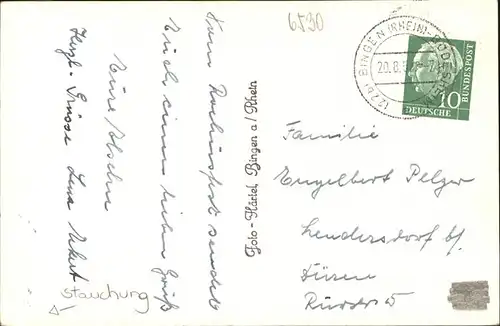 6530
(22b) BINGEN (RHEIN)-BÜDESHEIM
20.8.5
10
DEUTSCHE
BUNDESPOST
Familie
Engelbert Pelzer
Lendersdorf b/.
Düren
Rurstr 5
Foto-Härtel, Bingen a/Rhein
Zum Rochusfest sendet
Euch einen lieben Gruß
Eure
Herzl. Grüsse
Stauchung